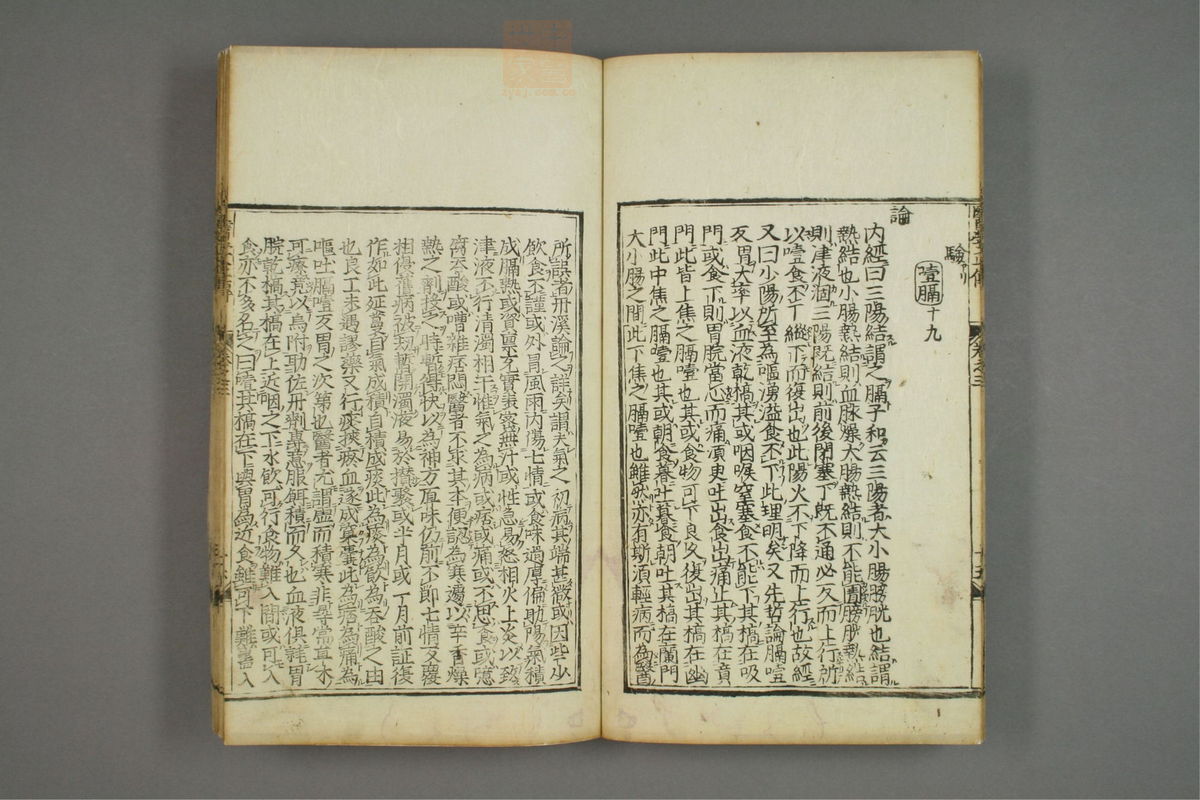 驗
噎膈 十九
論
内經曰三陽結謂之膈子和云三陽者大小腸膀胱也結謂
熱結也小腸熱結則血脉燥大腸熱結則不能圊膀胱熱結
則津液涸三陽既結則前後閉塞下既不通必反而上行所
以噎食不下縱下而復出也此陽火不下降而上行也故經
又曰少陽所至為嘔湧溢食不下此理明矣又先哲論膈噎
反胃大率以血液乾槁其或咽喉窒塞食不能下其槁在吸
門或食下則胃脘當心而痛須臾吐出食出痛止其槁在賁
門此皆上焦之膈噎也其或食物可下良久復出其槁在幽
門此中焦之膈噎也其或朝食暮吐暮食朝吐其槁在闌門
大小腸之間此下焦之膈噎也雖然亦有斯須輕病而為醫
所誤者丹溪論之詳矣謂夫氣之初病其端甚微或因些少
飲食不謹或外冒風雨内傷七情或食味過厚偏助陽氣積
成膈熱或資禀充實表密無汗或性急易怒相火上炎以致
津液不行清濁相干惟氣之為病或痞或痛或不思食或噫
腐吞酸或嘈雜痞悶醫者不求其本便認為寒遽以辛香燥
熱之劑投之時暫得快以為神方厚味仍前不節七情反覆
相擾舊病被劫暫開濁液易於攢聚或半月或一月前証復
作如此延蔓自氣成積自積成痰此為痰為飲為吞酸之由
也良工未遇謬藥又行痰挾瘀血遂成窠囊此為痞為痛為
嘔吐膈噎反胃之次第也醫者尤謂虛而積寒非尋常草木
可療竟以烏附助佐丹劑專意服餌積而久也血液俱耗胃
脘乾槁其槁在上近咽之下水飲可行食物難入間或可入
食亦不多名之曰噎其槁在下與胃為近食雖可下難盡入